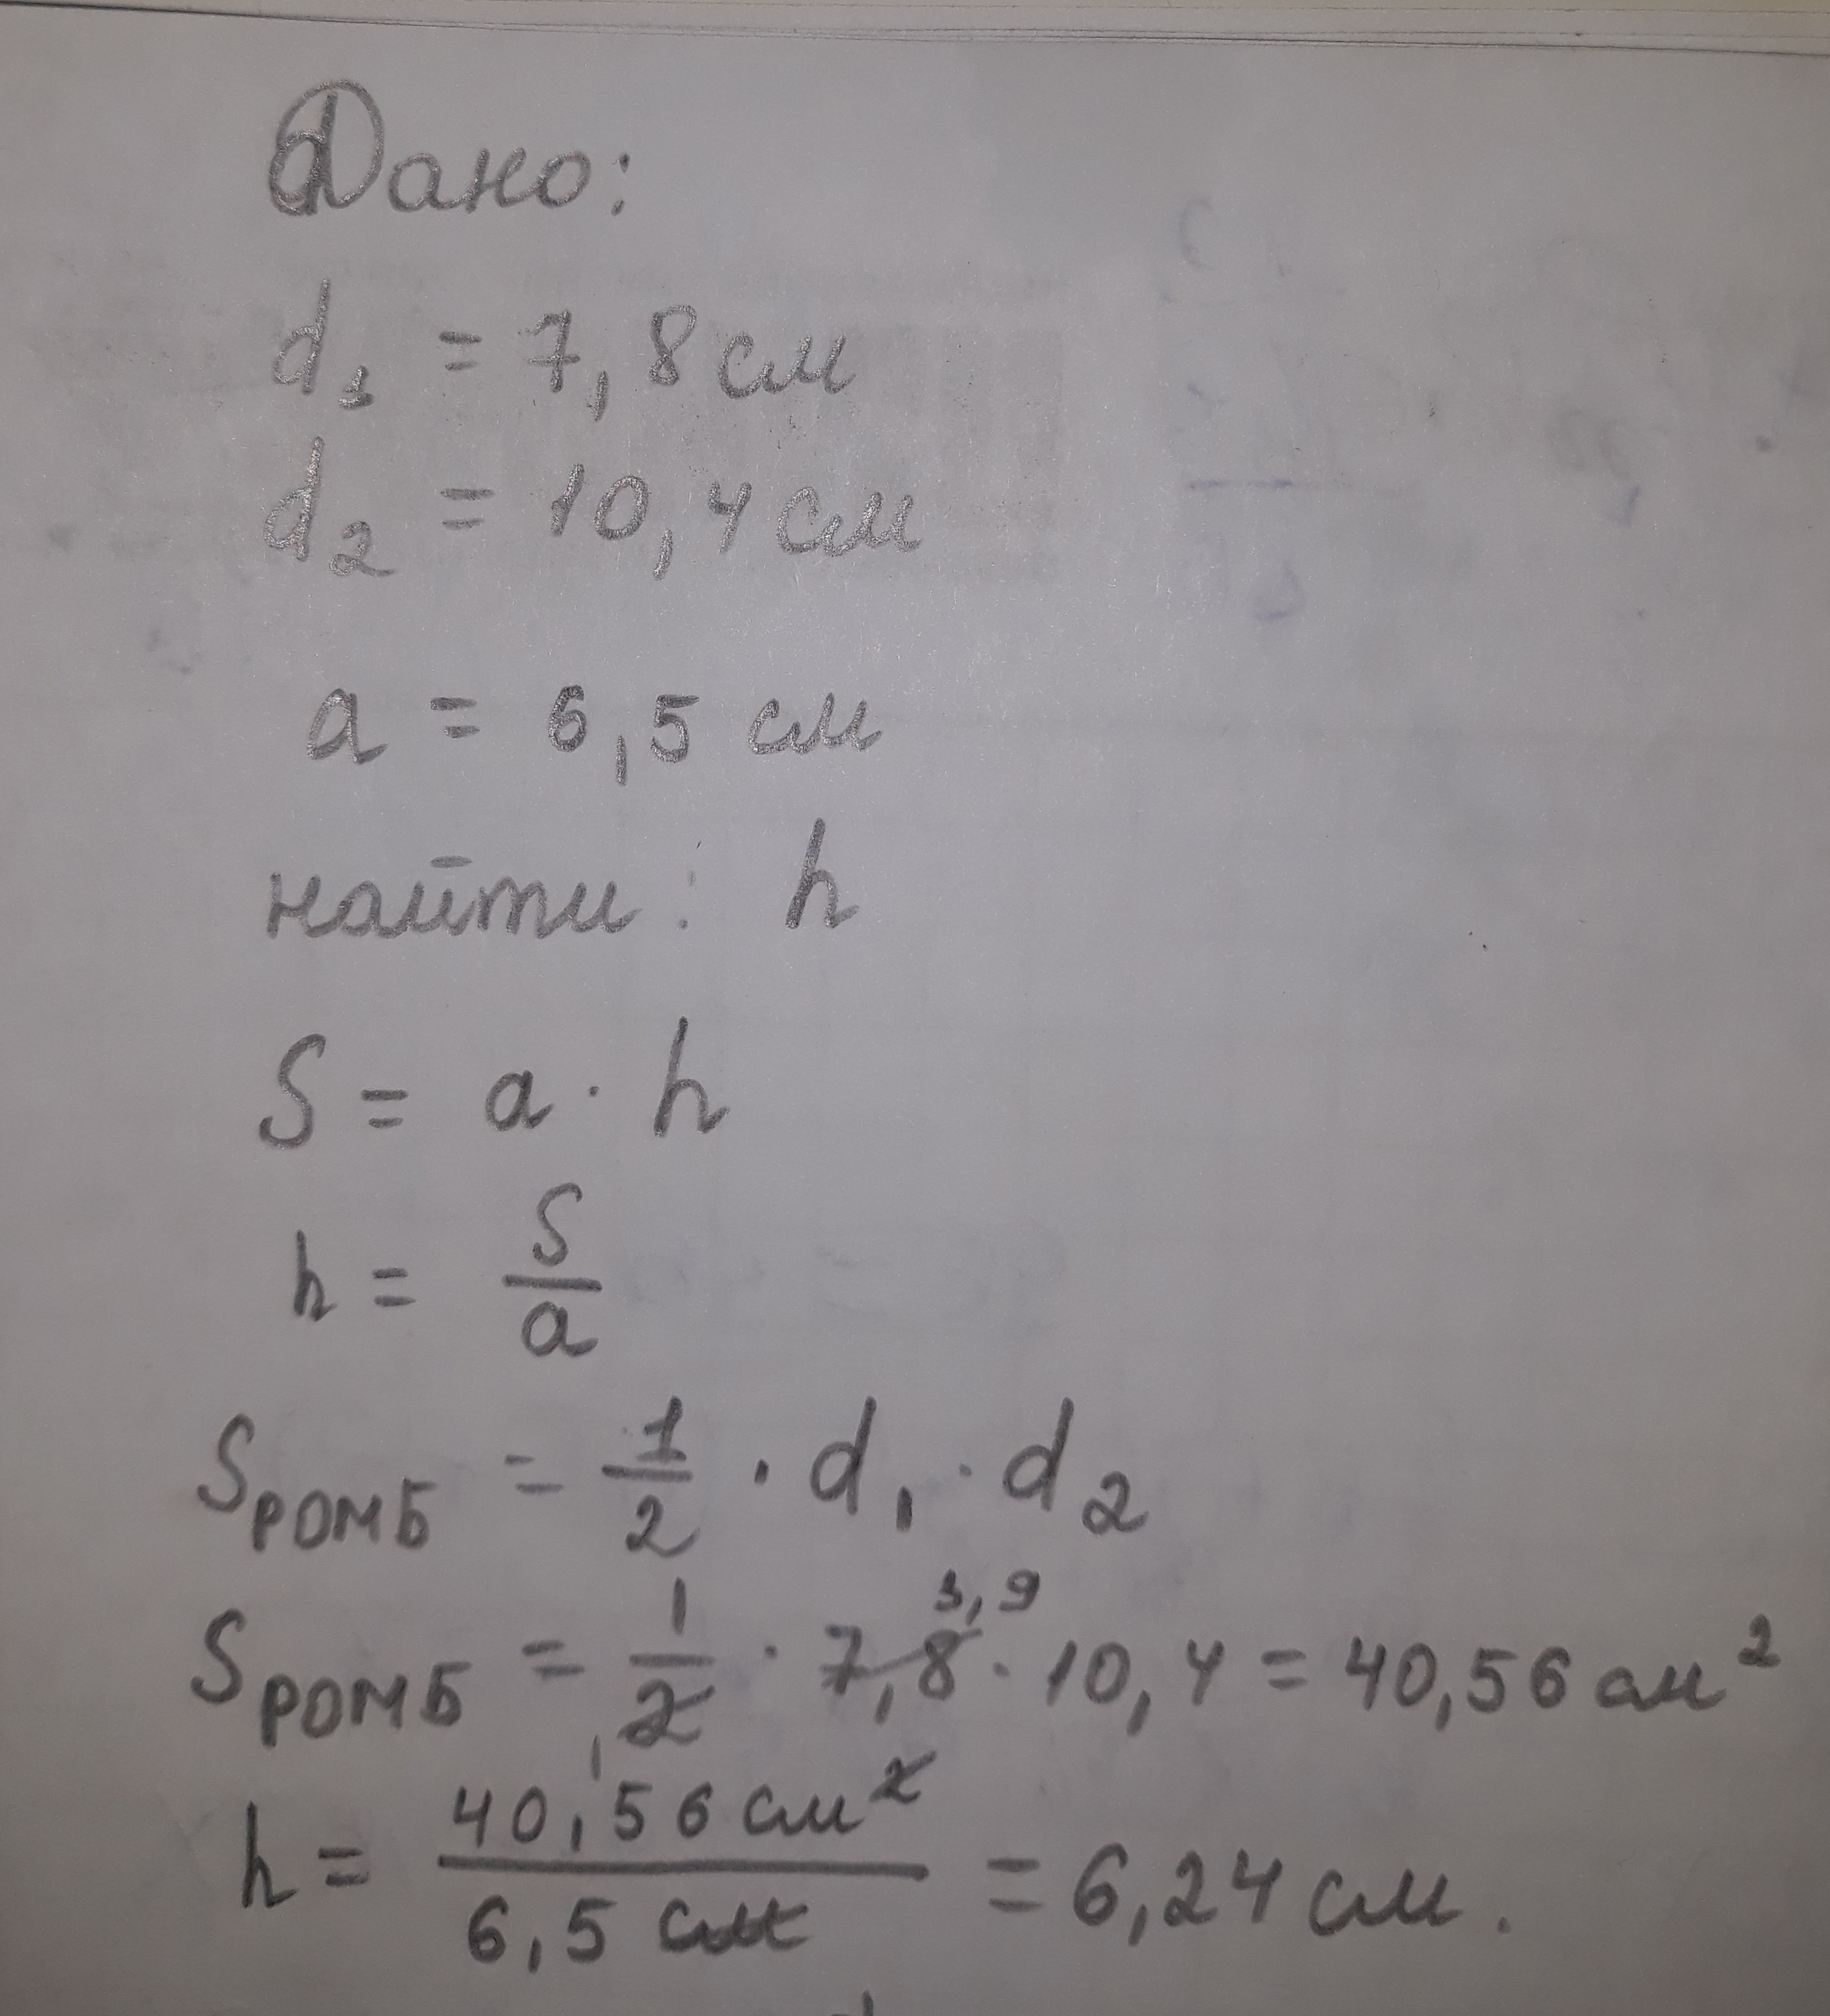 Дано:
d₁ = 7,8 см
d₂ = 10,4 см
a = 6,5 см
найти: h
S = a · h
h = S/a
Sромб = 1/2 · d₁ · d₂
3,9
Sромб = 1/2 · 7,8 · 10,4 = 40,56 см²
h = 40,56 см² / 6,5 см = 6,24 см.